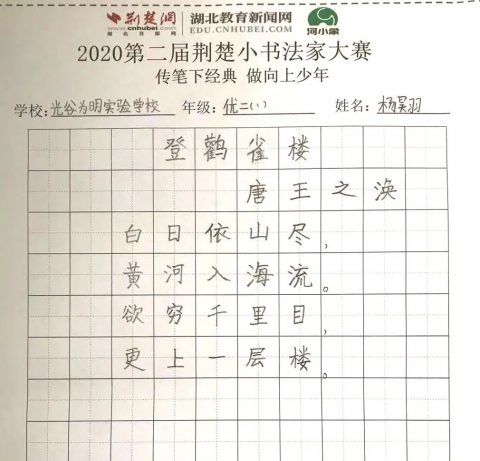 荆楚网
www.cnhubei.com
湖北教育新闻网
EDU.CNHUBEI.COM
河小象
2020第二届荆楚小书法家大赛
传笔下经典 做向上少年
学校:光谷为明实验学校 年级:优二(1) 姓名:杨昊羽
登鹳雀楼
唐王之涣
白日依山尽,
黄河入海流。
欲穷千里目,
更上一层楼。